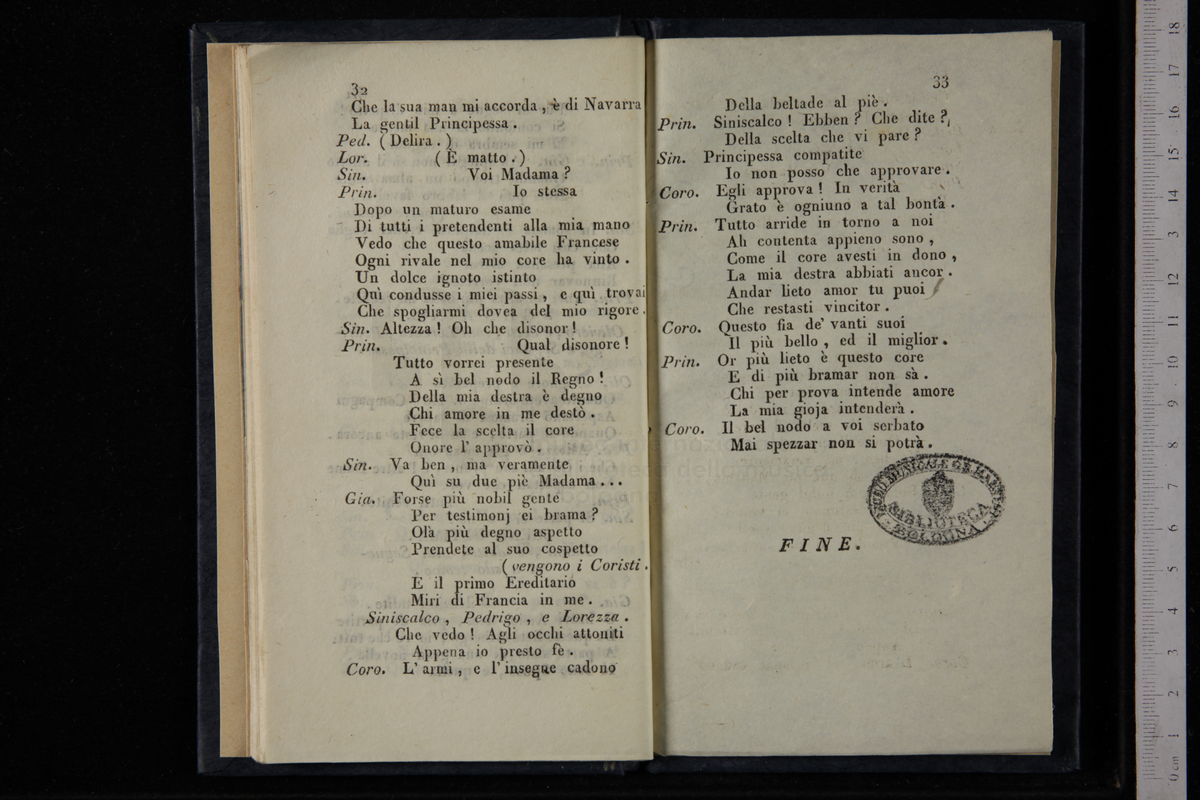 32
Che la sua man mi accorda , è di Navarra
La gentil Principessa .
Ped. ( Delira . )
Lor. ( È matto . )
Sin. Voi Madama ?
Prin. Io stessa
Dopo un maturo esame
Di tutti i pretendenti alla mia mano
Vedo che questo amabile Francese
Ogni rivale nel mio core ha vinto .
Un dolce ignoto istinto
Quì condusse i miei passi , e quì trovai
Che spogliarmi dovea del mio rigore .
Sin. Altezza ! Oh che disonor !
Prin. Qual disonore !
Tutto vorrei presente
A sì bel nodo il Regno !
Della mia destra è degno
Chi amore in me destò .
Fece la scelta il core
Onore l' approvò .
Sin. Va ben , ma veramente
Quì su due piè Madama . . .
Gia. Forse più nobil gente
Per testimonj ei brama ?
Olà più degno aspetto
Prendete al suo cospetto
( vengono i Coristi .
E il primo Ereditario
Miri di Francia in me .
Siniscalco , Pedrigo , e Lorezza .
Che vedo ! Agli occhi attoniti
Appena io presto fè .
Coro. L' armi , e l' insegne cadono
33
Della beltade al piè .
Prin. Siniscalco ! Ebben ? Che dite ?
Della scelta che vi pare ?
Sin. Principessa compatite
Io non posso che approvare .
Coro. Egli approva ! In verità
Grato è ogniuno a tal bontà .
Prin. Tutto arride in torno a noi
Ah contenta appieno sono ,
Come il core avesti in dono ,
La mia destra abbiati ancor .
Andar lieto amor tu puoi
Che restasti vincitor .
Coro. Questo fia de' vanti suoi
Il più bello , ed il miglior .
Prin. Or più lieto è questo core
E di più bramar non sà .
Chi per prova intende amore
La mia gioja intenderà .
Coro. Il bel nodo a voi serbato
Mai spezzar non si potrà .
BIBLIOTECA
BOLOGNA
FINE.
0 cm 1 2 3 4 5 6 7 8 9 10 11 12 13 14 15 16 17 18